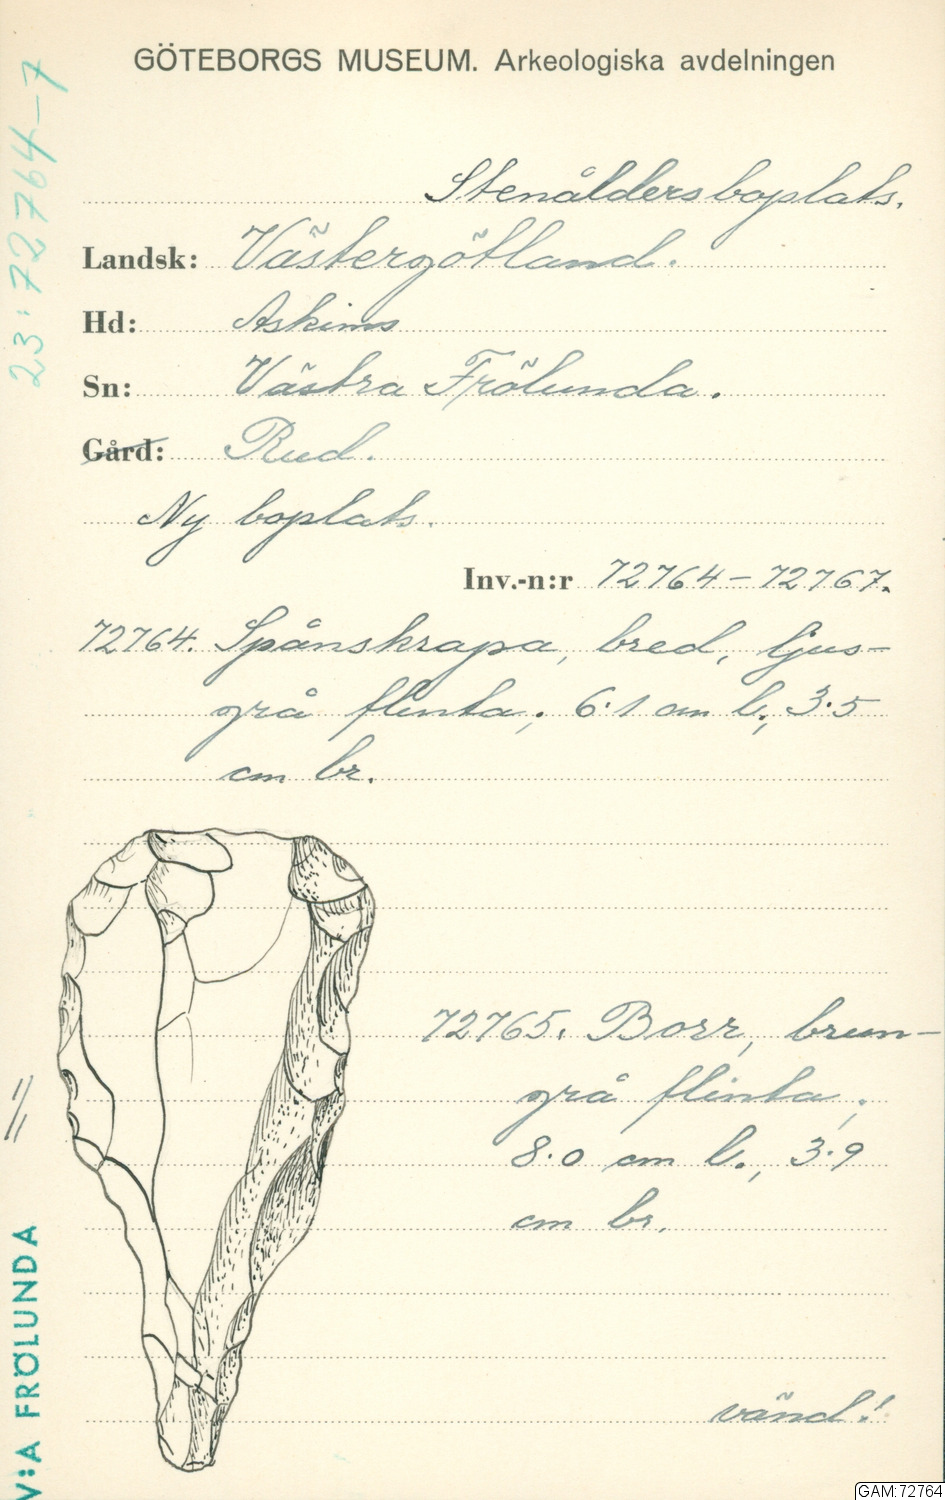 GÖTEBORGS MUSEUM. Arkeologiska avdelningen
23:72764-7
Stenåldersboplats.
Landsk: Västergötland.
Hd: Askims
Sn: Västra Frölunda.
Gård: Rud.
Ny boplats.
Inv.-n:r 72764-72767.
72764. Spånskrapa, bred, ljus-
grå flinta; 6.1 cm l., 3.5
cm br.
72765. Borr, brun-
grå flinta;
8.0 cm l., 3.9
cm br.
vänd!
V:A FRÖLUNDA
GAM:72764